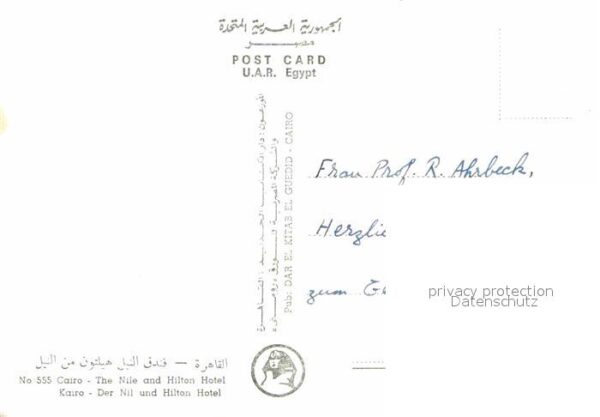 الجمهورية العربية المتحدة
مصر
POST CARD
U.A.R. Egypt
Pub: DAR EL KITAB EL GUEDID . CAIRO
Frau Prof. R. Ahrbeck,
Herzlie
zum
privacy protection
Datenschutz
القاهرة — فندق النيل هيلتون من النيل
No 555 Cairo - The Nile and Hilton Hotel
Kairo - Der Nil und Hilton Hotel